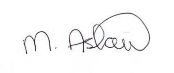 M. Aslam